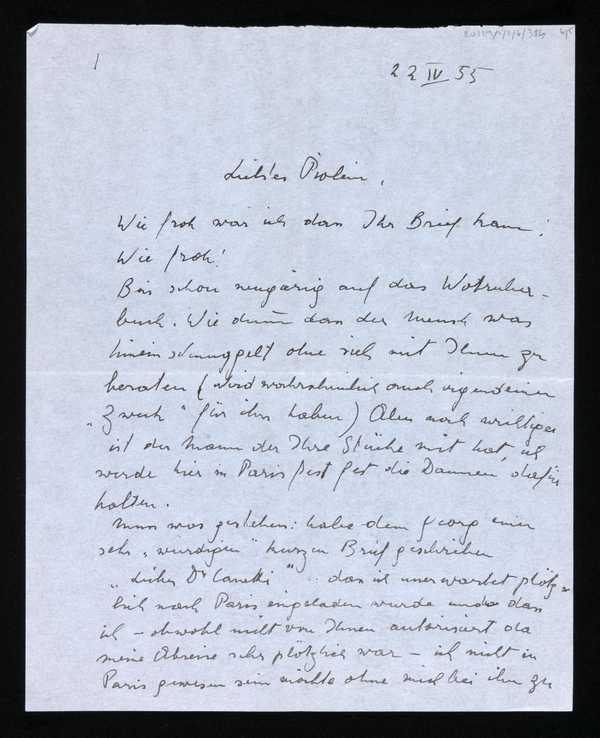 1
22 IV 55
Liebstes Piolein,
Wie froh war ich dass Ihr Brief kam!
Wie froh!
Bin schon neugierig auf das Wotruba-
buch. Wie dumm dass der Mensch was
hinein schmuggelt ohne sich mit Ihnen zu
beraten (wird wahrscheinlich auch irgendeinen
„Zweck" für ihn haben) Aber noch wichtiger
ist der Mann der Ihre Stücke mit hat, ich
werde hier in Paris fest fest die Daumen dafür
halten.
Muss was gestehen: habe dem Georg einen
sehr „würdigen" kurzen Brief geschrieben
„Lieber Dr Canetti" : dass ich unerwartet plötz-
lich nach Paris eingeladen wurde und dass
ich – obwohl nicht von Ihnen autorisiert da
meine Abreise sehr plötzlich war – ich nicht in
Paris gewesen sein möchte ohne mich bei ihm zu